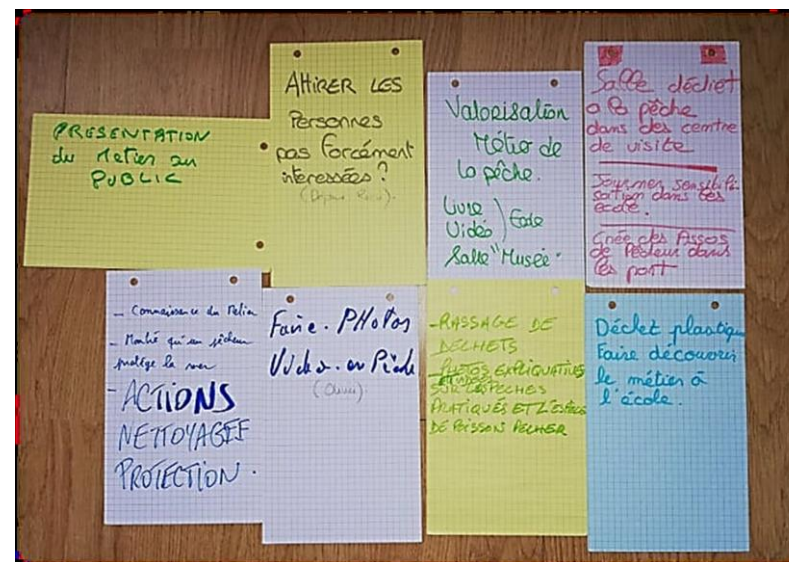 PRESENTATION
du Metier au
PUBLIC
ATTIRER LES
Personnes
pas Forcément
interessées ?
Valorisation
Métier de
la pêche.
Livre
Vidéo
Ecole
Salle "Musée".
Salle dédiet
a la pêche
dans des centre
de visite
Journer sensibili-
sation dans les
ecole.
Crée des Assos
de Pêcheur dans
les port
- Connaissance du Métier
- Montré qu'un pêcheur
protège la mer
- ACTIONS
NETTOYAGE
PROTECTION.
Faire. PHotos
Vidéo. en Pêche
- RASSAGE DE
DECHETS
- PHOTOS EXPLIQUATIVES
SUR LES PECHES
PRATIQUÉS ET L'ESPÈCE
DE POISSON PECHER
Déchet plastique
Faire découvrir
le métier à
l'école.